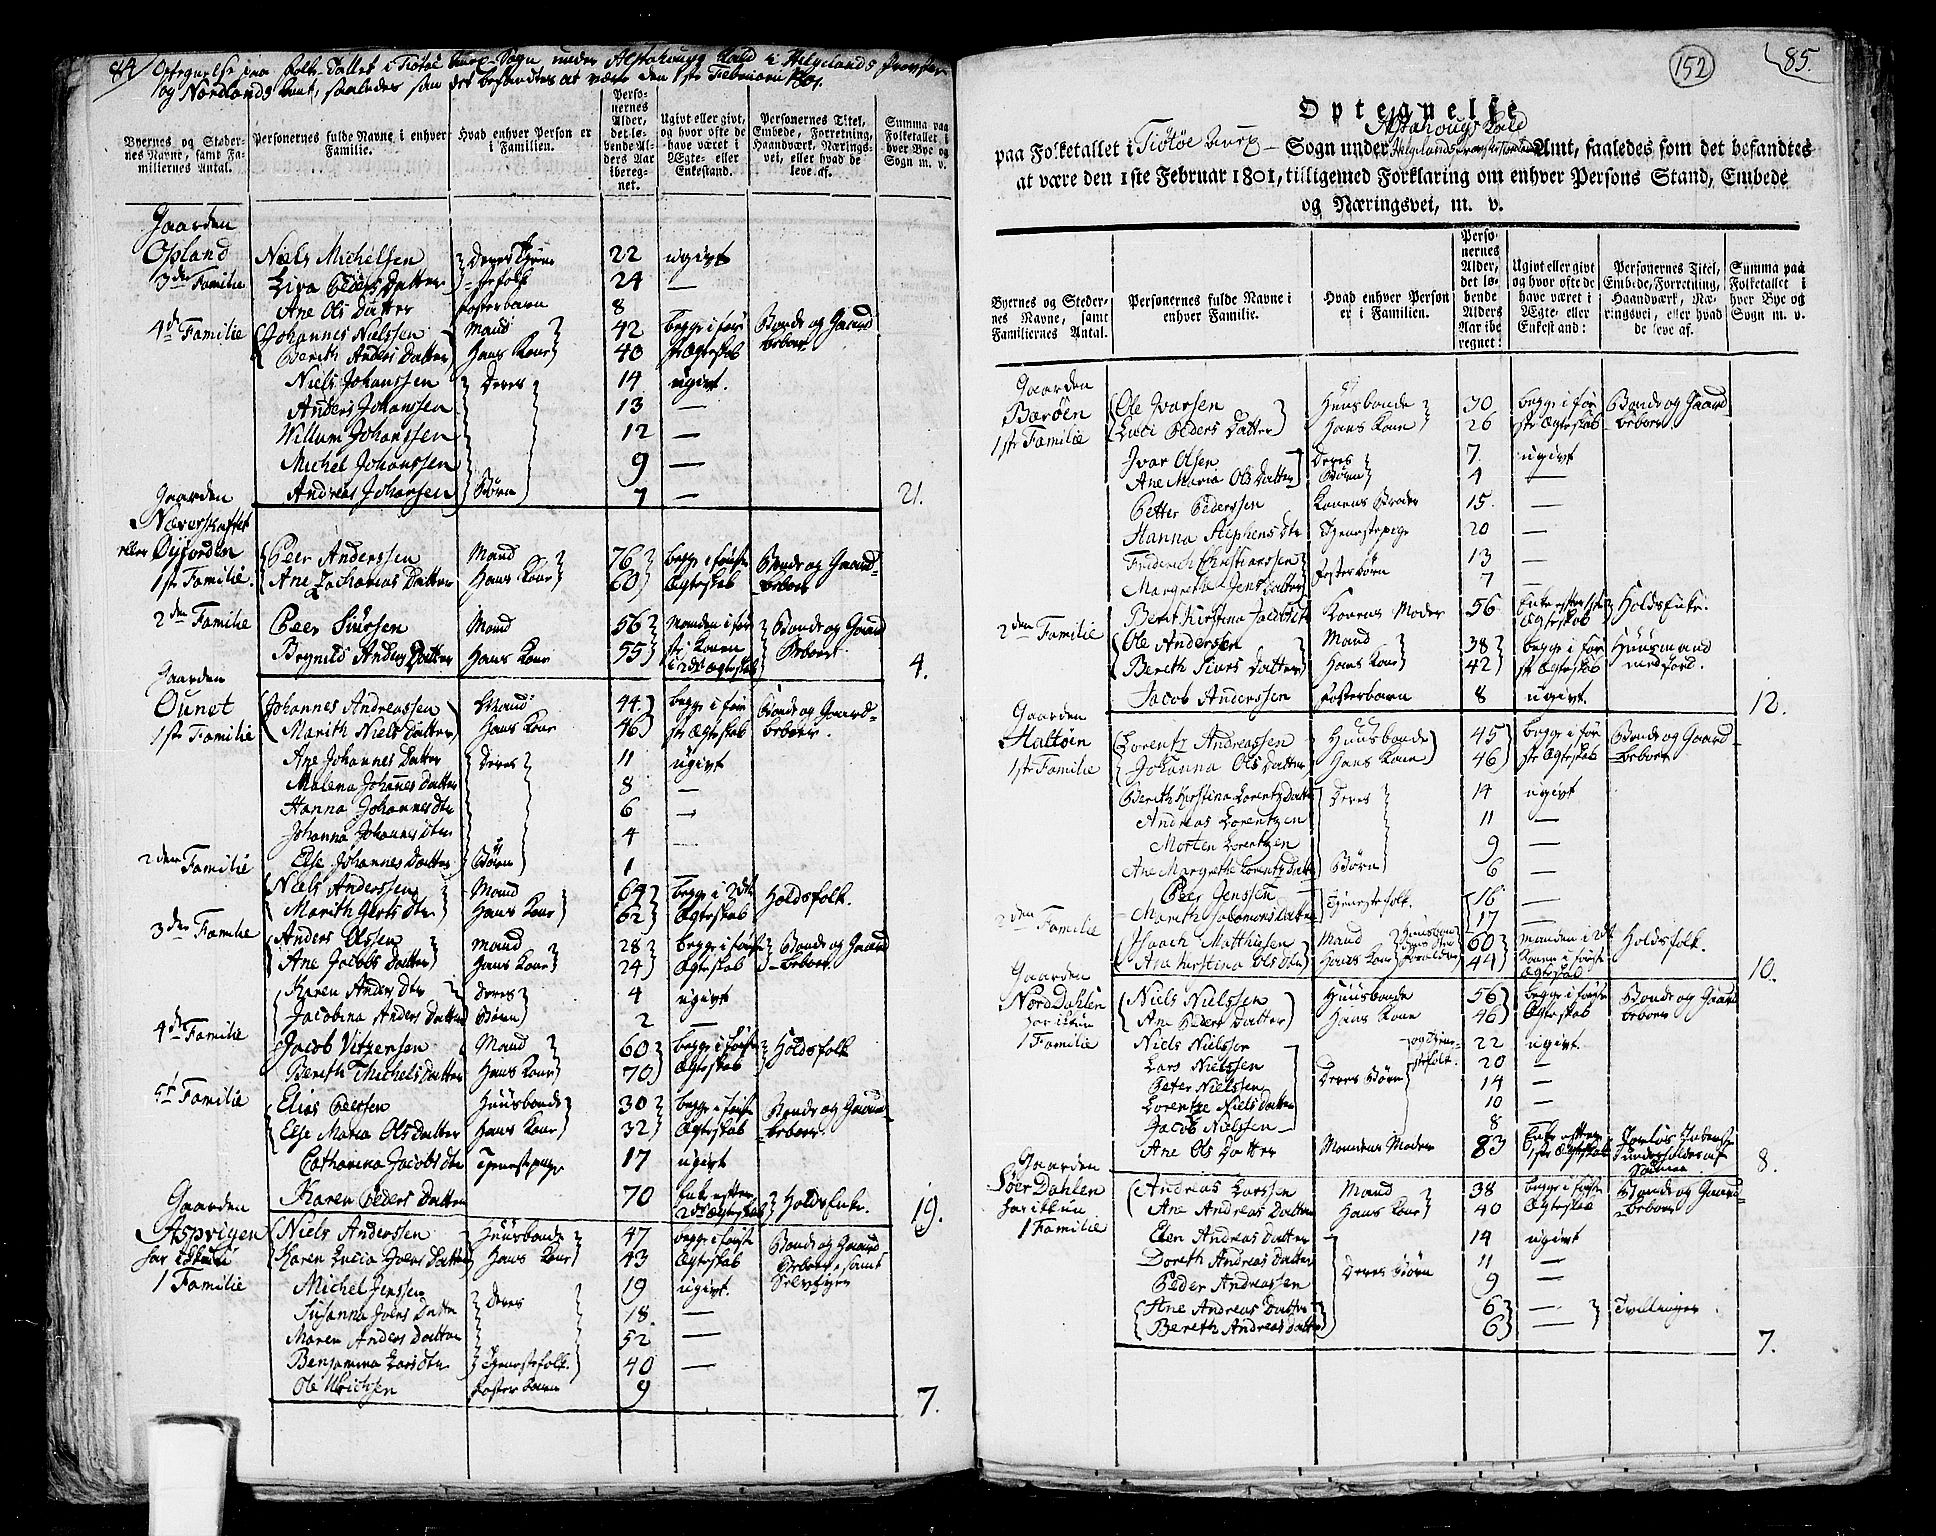 84
Optegnelse paa Folke Tallet i Tiötöe Sogn under Alstahoug Kald i Helgelands Provstie
og Nordlands Amt, saaledes som det befandtes at være den 1ste Februarii 1801.
Byernes og Stedernes Navne, samt Familiernes Antal.
Personernes fulde Navne i enhver Familie.
Hvad enhver Person er i Familien.
Personernes Alder, det løbende Alders Aar iberegnet.
Ugivt eller givt, og hvor ofte de have været i Ægte- eller Enkestand.
Personernes Titel, Embede, Forretning, Haandværk, Næringsvei, eller hvad de leve af.
Summa paa Folketallet i hver Bye og Sogn m. v.
Gaarden
Opland Niels Michelsen Deres Tjene 22 ugivt
3die Familie Liva Peders Datter stefolk 24 —
Ane Ols Datter Fosterbarn 8
4de Familie Johannes Nielssen Mand 42 begge i før Bonde og Gaard
Berith Anders Datter Hans Kone 43 ste Ægteskab beboer
Niels Johanssen Deres 14 ugivt.
Anders Johanssen 13 —
Willum Johanssen 12 —
Michel Johanssen 9 —
Andreas Johansen Børn 7 — 21.
Gaarden
Næverskaftet
eller Øifjorden Peer Anderssen Mand 76 begge i første Bonde og Gaard
1ste Familie. Ane Zacharias Datter Hans Kone 60 Ægteskab beboer
2den Familie Peer Siursen Mand 56 Manden i før Bonde og Gaard
Brynild Anders Datter Hans Kone 55 ste, Konen i 2det Ægteskab Beboer 4.
Gaarden
Ounet Johannes Andreassen Mand 44 begge i før Bonde og Gaard
1ste Familie Marith Niels Datter Hans Kone 46 ste Ægteskab beboer
Ane Johannes Datter Deres 11 ugivt
Malena Johannes Datter 8 —
Hanna Johannes Dtr 6 —
Johanna Johannes Dtr 4 —
Else Johannes Datter Børn 1
2den Familie Niels Anderssen Mand 64 begge i 2det Holdsfolk.
Marith Gerts Dtr Hans Kone 62 Ægteskab
3die Familie Anders Olssen Mand 28 begge i første Bonde og Gaard
Ane Jacobs Datter Hans Kone 24 Ægteskab beboer
Karen Anders Dtr Deres 4 ugivt
Jacobina Anders Datter Børn 2 —
4de Familie Jacob Vitzensen Mand 60 begge i første Holdsfolk
Bereth Michels Datter Hans Kone 70 Ægteskab
5t Familie Elias Peersen Huusbonde 30 begge i første Bonde og Gaard
Else Maria Ols Datter Hans Kone 32 Ægteskab beboer.
Catharina Jacobs Dtr Tjenestepige 17 ugivt
Karen Peders Datter 70 Enke efter 2det Ægteskab Holdsenke. 19.
Gaarden
Aspvigen Niels Anderssen Huusbonde 47 begge i første Bonde og Gaard
har ikkun Karen Lucia Joens Datter Hans Kone 43 Ægteskab Beboer, samt
1 Familie Michel Jenssen Deres 19 ugivt. Selveyer
Susanna Joens Datter 18 —
Maren Anders Datter 52 —
Benjamina Lars Dtr Tjenestefolk. 40 —
Ole Ulrichsen Foster barn 9 7.
152
85.
Optegnelse
Alstahougs Kald
paa Folketallet i Tiötöe Sogn under Helgelands Amt, saaledes som det befandtes
at være den 1ste Februar 1801, tilligemed Forklaring om enhver Persons Stand, Embede
og Næringsvei, m. v.
Byernes og Stedernes Navne, samt Familiernes Antal.
Personernes fulde Navne i enhver Familie.
Hvad enhver Person er i Familien.
Personernes Alder, det løbende Alders Aar iberegnet:
Ugivt eller givt og hvor ofte de have været i Ægte- eller Enkestand:
Personernes Titel, Embede, Forretning, Haandværk, Næringsvei, eller hvad de leve af.
Summa paa Folketallet i hver Bye og Sogn m. v.
Gaarden
Barøen Ole Ivarsen Huusbonde 30 begge i før Bonde og Gaard
1ste Familie Luci Peders Datter Hans Kone 26 ste Ægteskab beboer
Ivar Olsen Deres 7. ugivt
Ane Maria Ols Datter Børn 4 —
Petter Pederssen Konens Broder 15. —
Hanna Stephens Dtr Tjenestepige 20 —
Friderich Christianssen Foster børn 13 —
Margreta Jens Datter 7
Berit Kirstina Jacobs Dtr Konens Moder 56 Enke efter 1ste Ægteskab Holdsenke.
2den Familie Ole Anderssen Mand 38 begge i før Huusmand
Bereth Siurs Datter Hans Kone 42 ste Ægteskab med Jord.
Jacob Anderssen Fosterbarn 8 ugivt. 12.
Gaarden
Haltøen Lorentz Andreassen Huusbonde 45 begge i før Bonde og Gaard
1ste Familie Johanna Ols Datter Hans Kone 46 ste Ægteskab beboer
Bereth Kirstina Lorentz Datter Deres 14 ugivt
Andreas Lorentzen 11 —
Morten Lorentzen 9 —
Ane Margrethe Lorentz Datter Børn 6 —
Peer Jenssen Tjenestefolk. 16 —
Mereth Salomons Datter 17 —
2den Familie Isaach Matthisen Mand 60 Manden i 2det Holdsfolk.
Ane Kirstina Ols Dtr Hans Kone 44 Konen i første Ægteskab 10.
Gaarden
Nord Dahlen Niels Nielssen Huusbonde 56 begge i første Bonde og Gaard
har ikkun Ane Peders Datter Hans Kone 46 Ægteskab beboer
1 Familie Niels Nielssen og Tjene 22 ugivt.
Lars Nielssen stefolk. 20 —
Peter Nielssen Deres Børn 14 —
Lorentze Niels Datter 10 —
Jacob Nielssen 8 —
Ane Ols Datter Mandens Moder 83 Enke efter 1ste Ægteskab 8.
Gaarden
Søer Dahlen Andreas Larssen Mand 38 begge i første Bonde og Gaard
har ikkun Ane Andreas Datter Hans Kone 40 Ægteskab beboer
1 Familie Elen Andreas Datter 14 ugivt
Doreth Andreas Datter Deres Børn 11 —
Peder Andreassen 9 —
Ane Andreas Datter 6 — Tvillinger.
Bereth Andreas Datter 6 — 7.